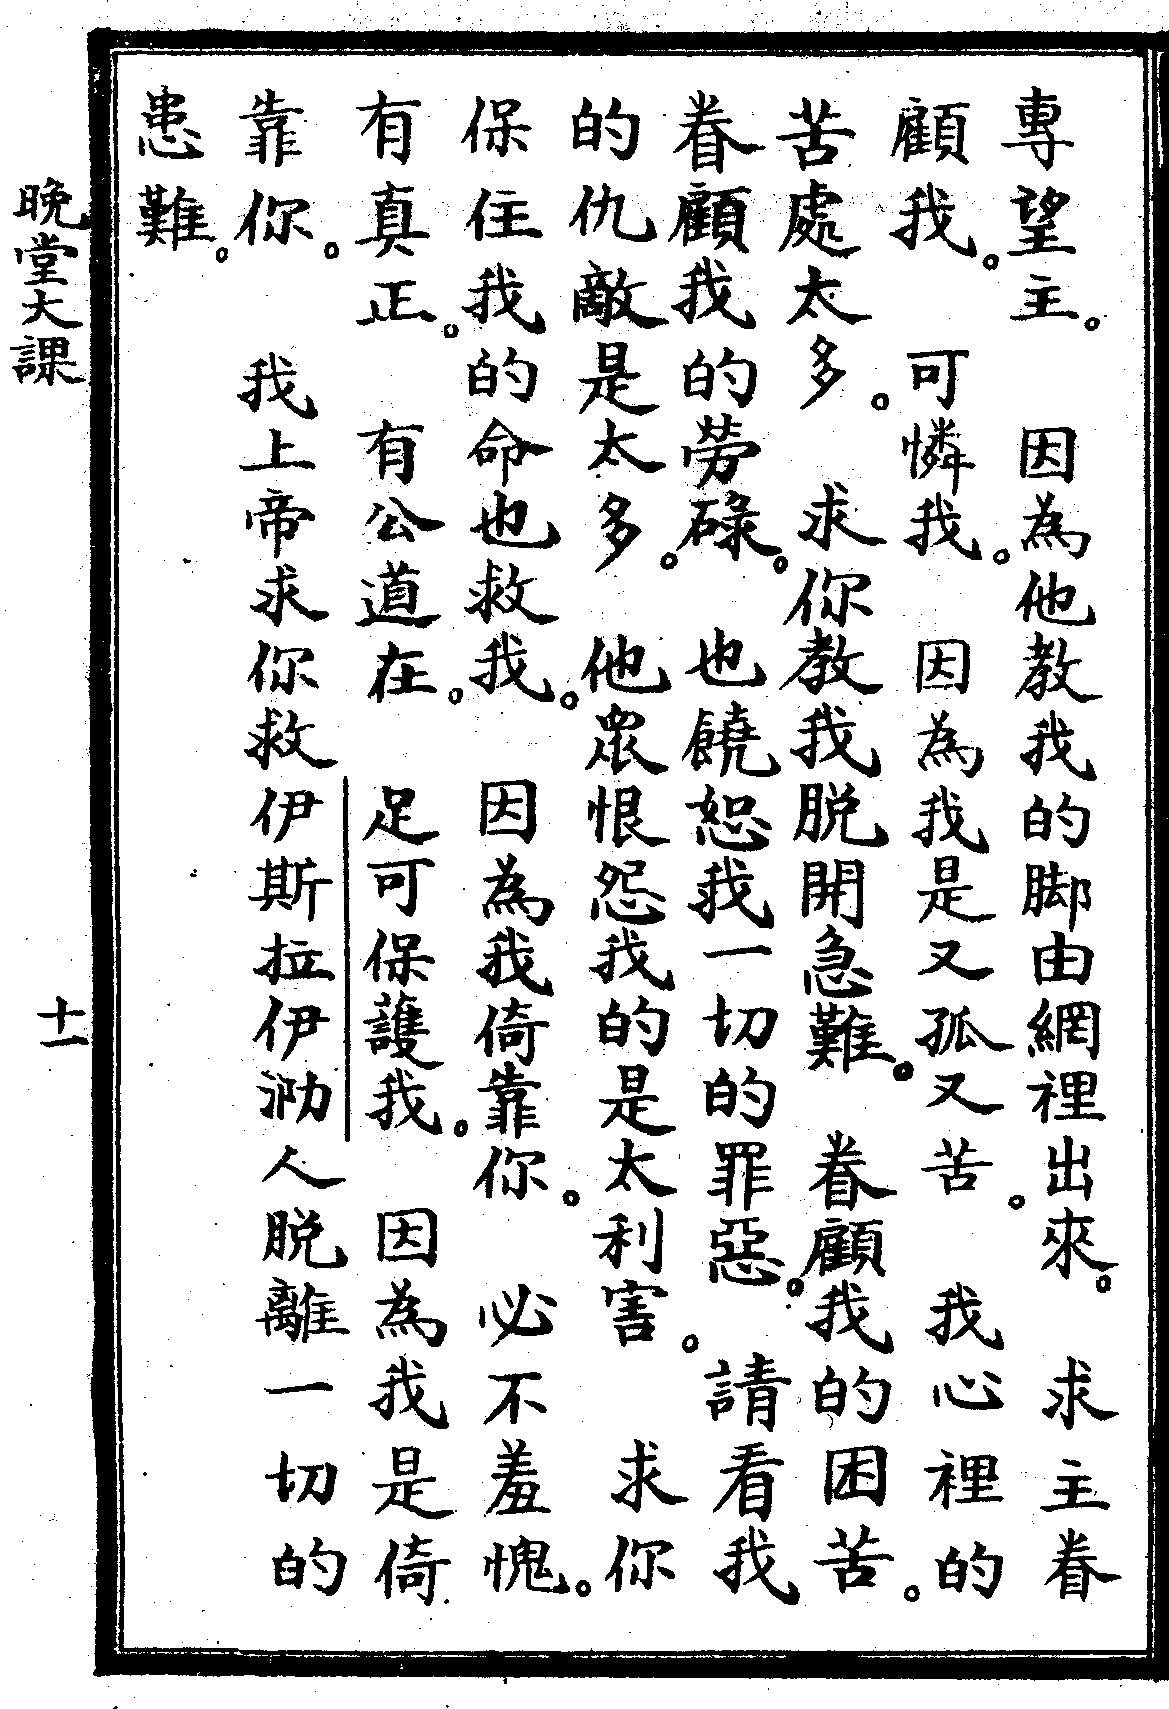 專望主。因為他教我的脚由網裡出來。求主眷
顧我。可憐我。因為我是又孤又苦。我心裡的
苦處太多。求你教我脱開急難。眷顧我的困苦。
眷顧我的勞碌。也饒恕我一切的罪惡。請看我
的仇敵是太多。他衆恨怨我的是太利害。求你
保住我的命也救我。因為我倚靠你。必不羞愧。
有真正。有公道在。足可保護我。因為我是倚
靠你。我上帝求你救伊斯拉伊泐人脱離一切的
患難。
晚堂大課
十一